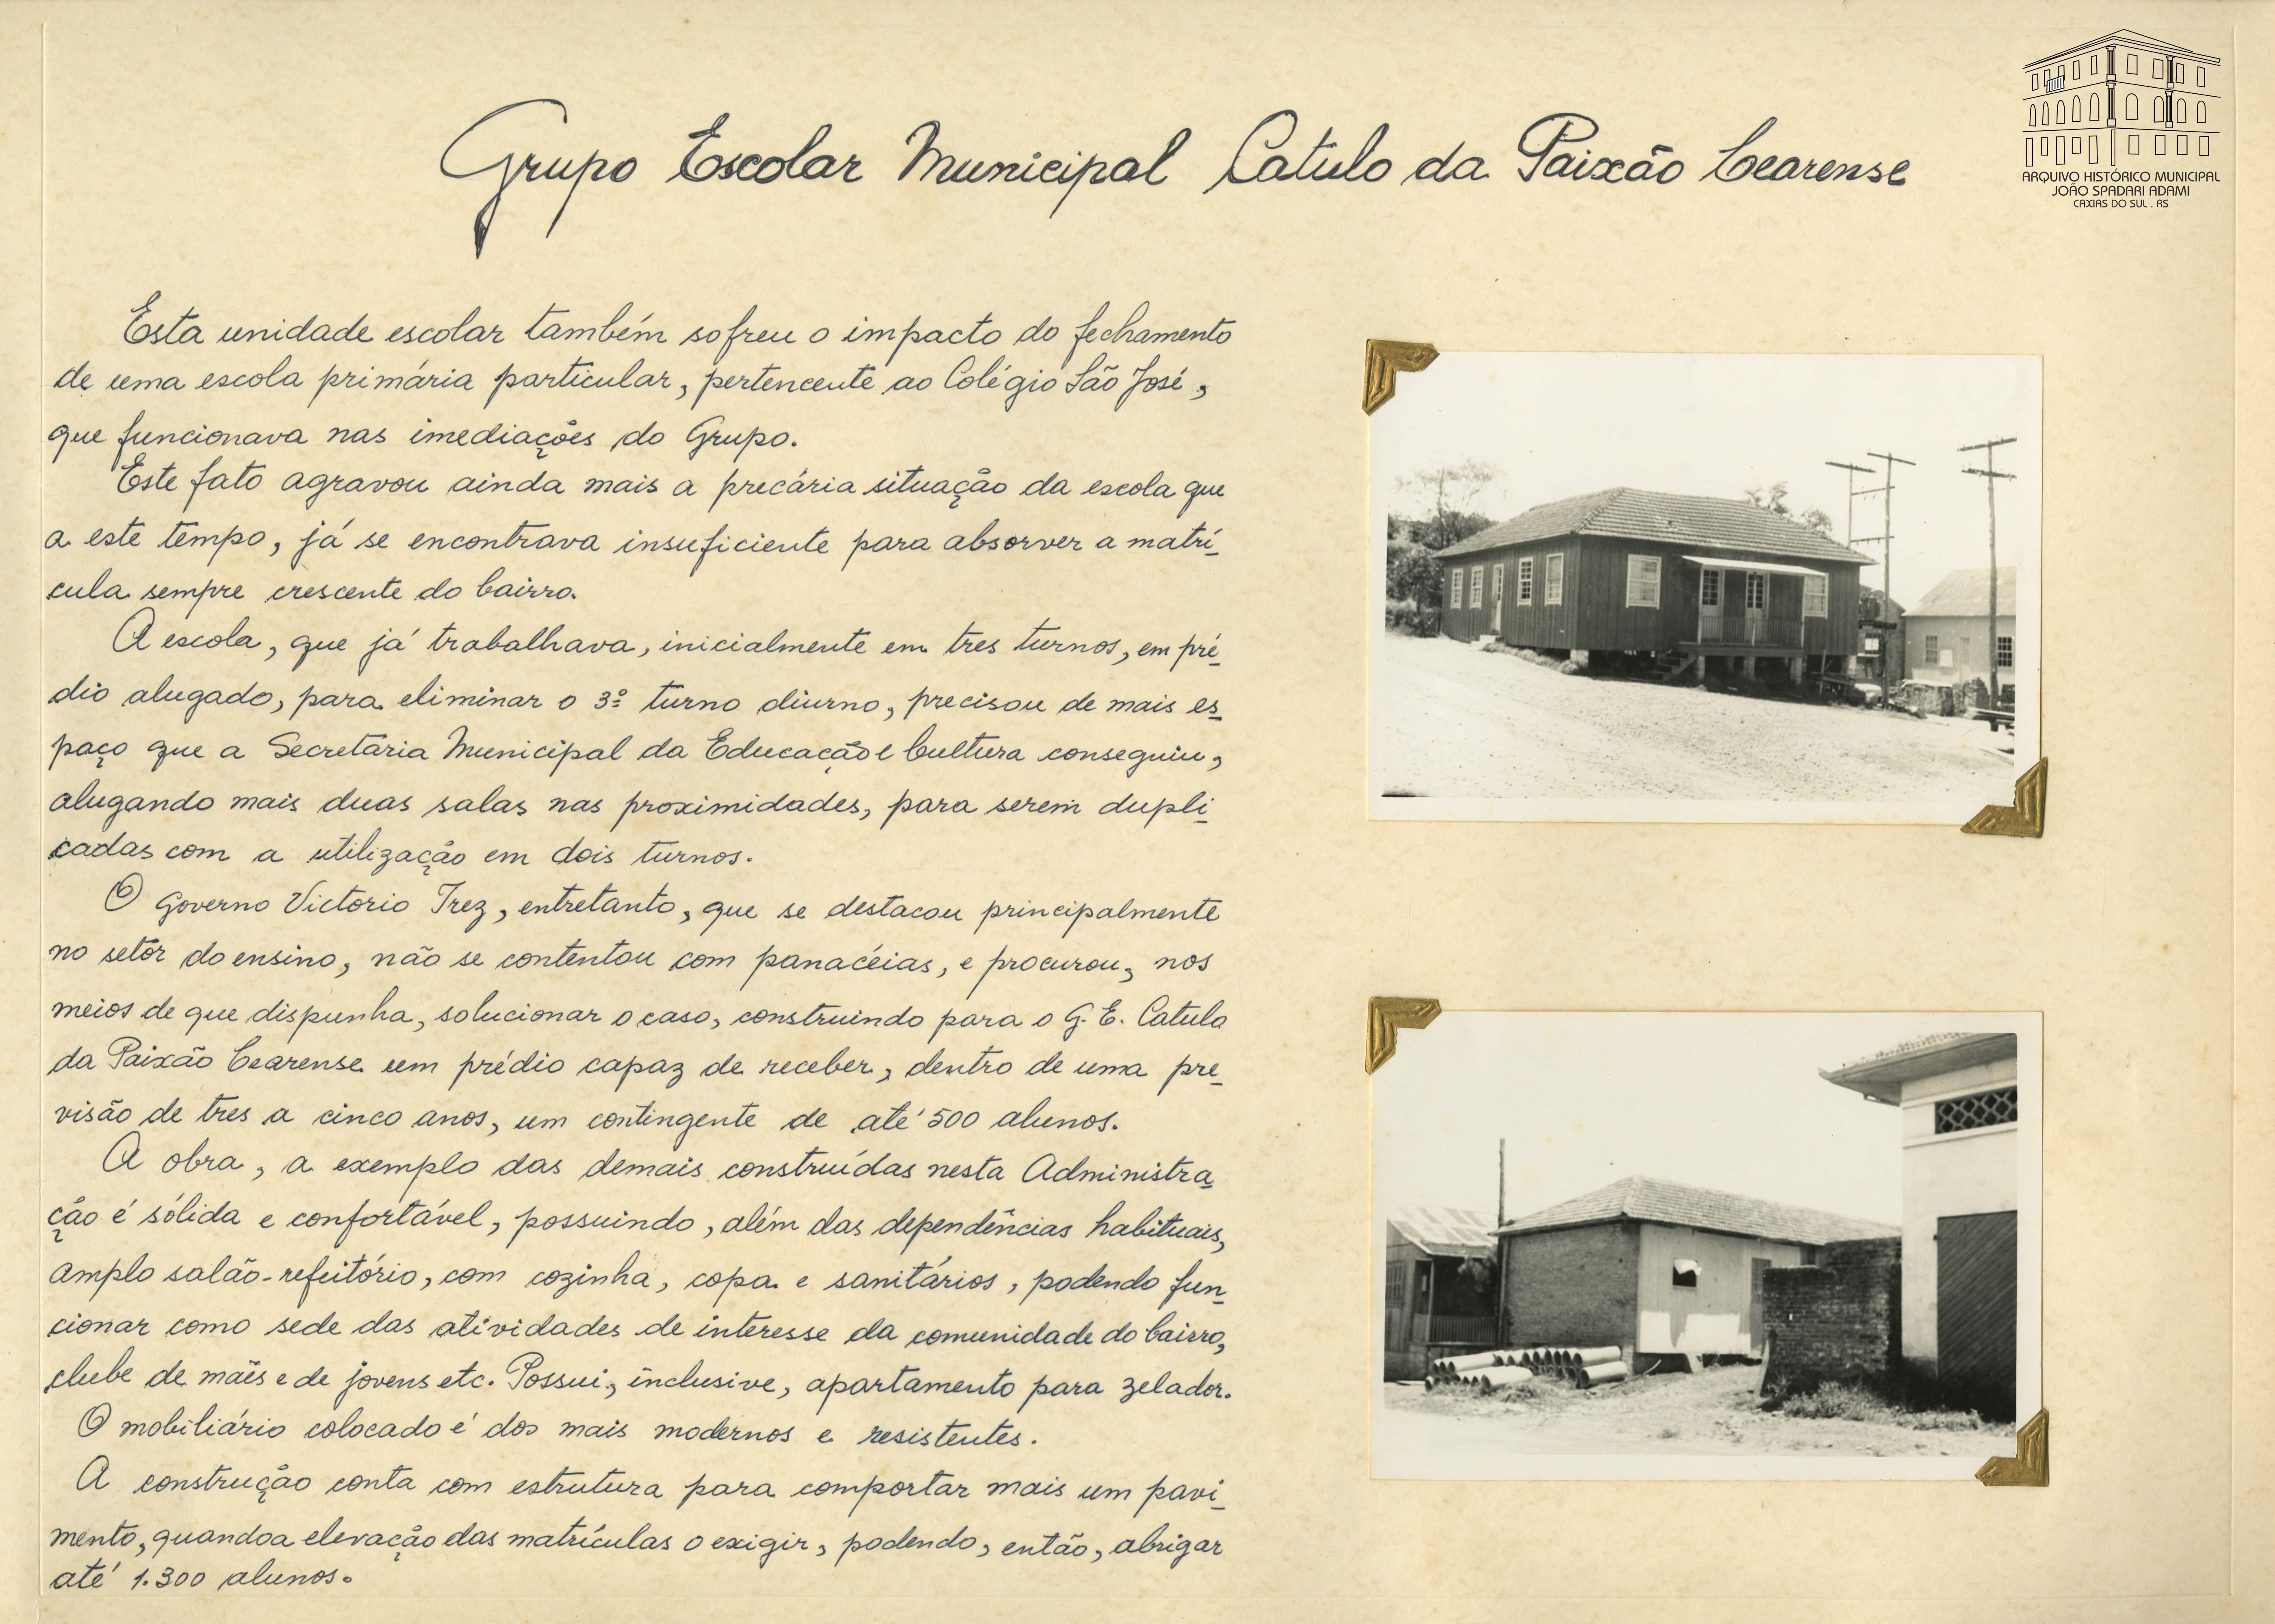 Grupo Escolar Municipal Catulo da Paixão Cearense
ARQUIVO HISTÓRICO MUNICIPAL
JOÃO SPADARI ADAMI
CAXIAS DO SUL . RS
Esta unidade escolar também sofreu o impacto do fechamento
de uma escola primária particular, pertencente ao Colégio São José,
que funcionava nas imediações do Grupo.
Este fato agravou ainda mais a precária situação da escola que
a este tempo, já se encontrava insuficiente para absorver a matrí_
cula sempre crescente do bairro.
A escola, que já trabalhava, inicialmente em tres turnos, em pré_
dio alugado, para eliminar o 3º turno diurno, precisou de mais es_
paço que a Secretaria Municipal da Educação e Cultura conseguiu,
alugando mais duas salas nas proximidades, para serem dupli_
cadas com a utilização em dois turnos.
O Governo Victorio Trez, entretanto, que se destacou principalmente
no setôr do ensino, não se contentou com panacéias, e procurou, nos
meios de que dispunha, solucionar o caso, construindo para o G. E. Catulo
da Paixão Cearense um prédio capaz de receber, dentro de uma pre_
visão de tres a cinco anos, um contingente de até 500 alunos.
A obra, a exemplo das demais construídas nesta Administra_
ção é sólida e confortável, possuindo, além das dependências habituais,
amplo salão-refeitório, com cozinha, copa e sanitários, podendo fun_
cionar como sede das atividades de interesse da comunidade do bairro,
clube de mães e de jovens etc. Possui, inclusive, apartamento para zelador.
O mobiliário colocado é dos mais modernos e resistentes.
A construção conta com estrutura para comportar mais um pavi_
mento, quando a elevação das matrículas o exigir, podendo, então, abrigar
até 1.300 alunos.